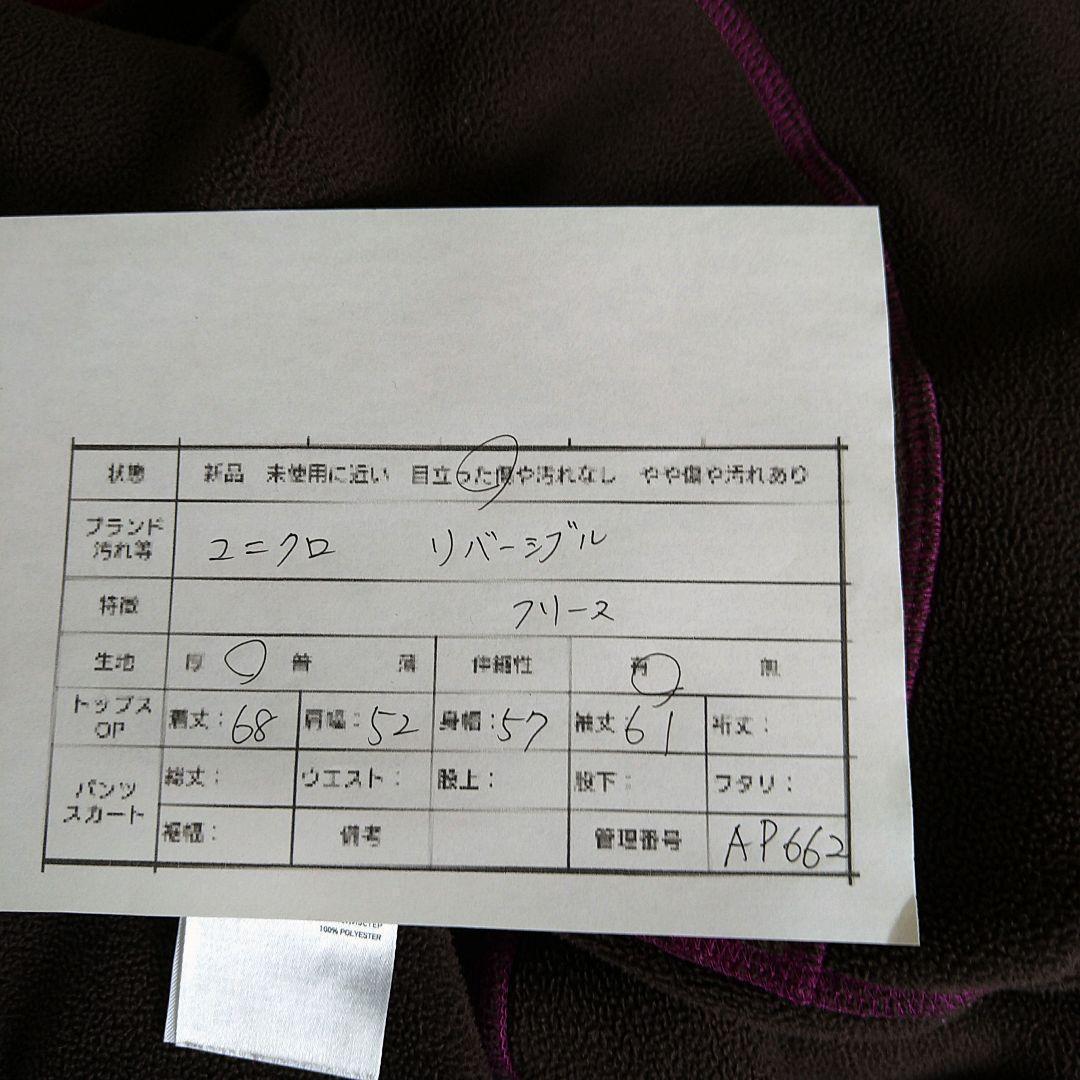 状態 新品 未使用に近い 目立った傷や汚れなし やや傷や汚れあり
ブランド
汚れ等 ユニクロ リバーシブル
特徴 フリース
生地 厚 普 薄 伸縮性 有 無
トップス
OP 着丈：68 肩幅：52 身幅：57 袖丈：61 裄丈：
パンツ
スカート 総丈： ウエスト： 股上： 股下： ワタリ：
裾幅： 備考 管理番号 AP662
100% POLYESTER